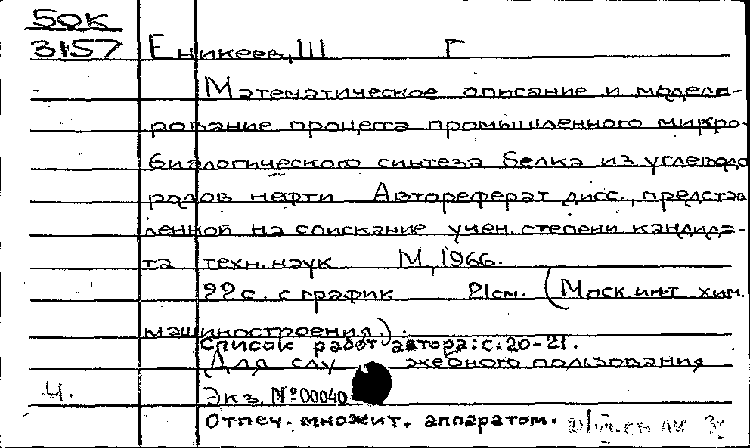 50К
3157 Еникеев, Ш Г
Математическое описание и модели-
рование процесса промышленного микро-
биологического синтеза белка из углеводо
родов нефти Автореферат дисс., представ
ленной на соискание учен. степени кандида-
та техн. наук М, 1966.
22 с. с график 21 см. (Моск. ин-т хим.
машиностроения.).
Список работ автора: с. 20-21.
Для слу жебного пользования
Ч. Экз. № 00040
Отпеч. множит. аппаратом.